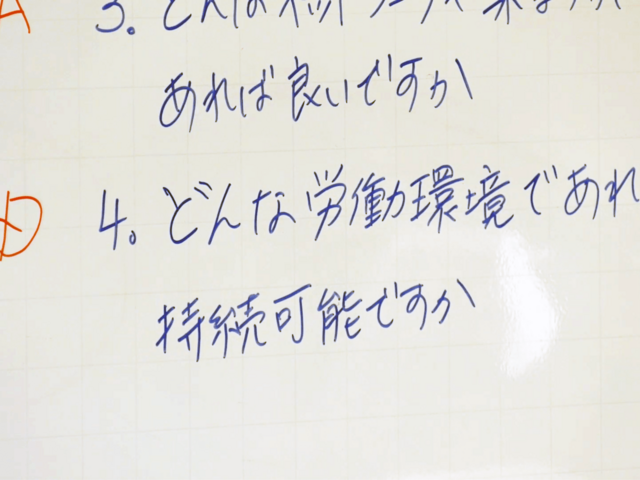 3. どんな
あれば良いですか
4. どんな労働環境であれ
持続可能ですか